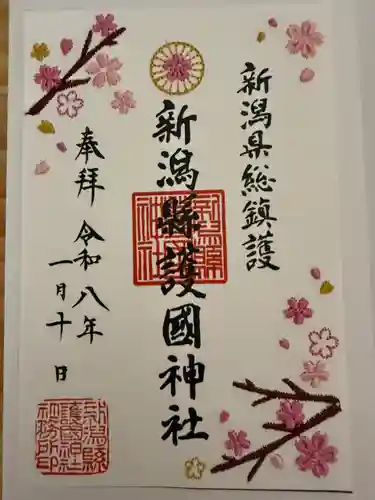 新潟県総鎮護
新潟縣護國神社
奉拝 令和八年
一月十日
新潟縣
護國神社
社務所印